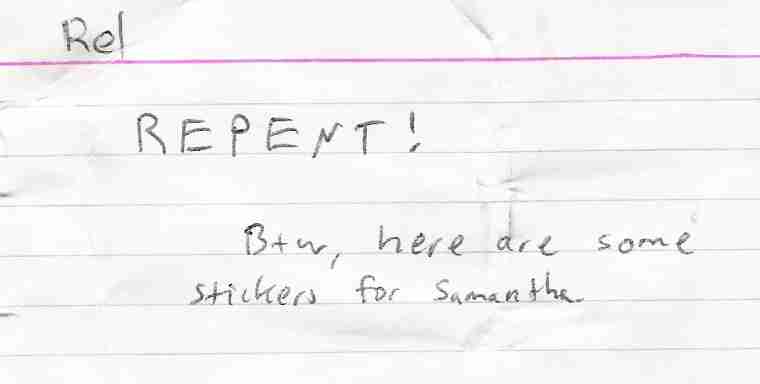 Rel
REPENT!
Btw, here are some
stickers for Samantha